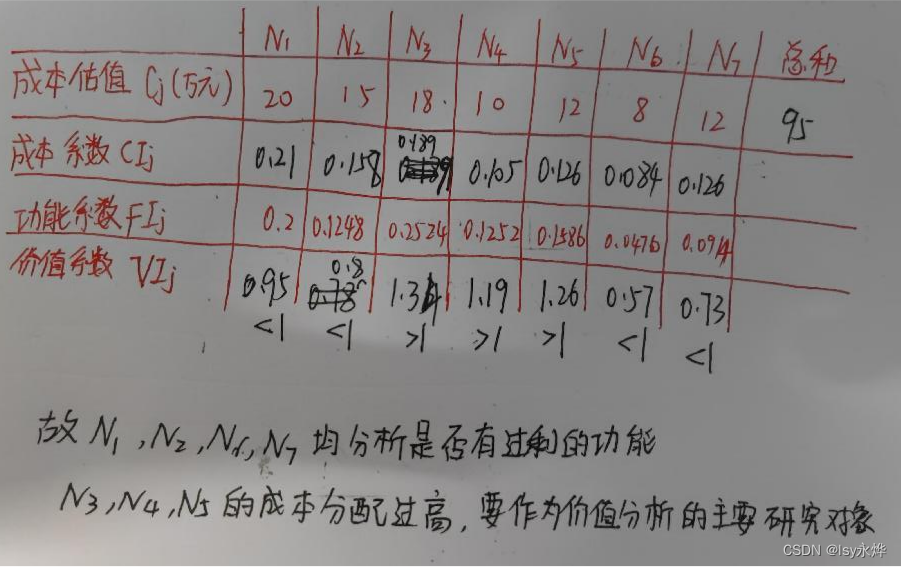 N₁ N₂ N₃ N₄ N₅ N₆ N₇ 总和
成本估值 Cj(万元) 20 15 18 10 12 8 12 95
成本系数 CIj 0.21 0.158 0.189 0.105 0.126 0.084 0.126
功能系数 FIj 0.2 0.1248 0.2524 0.1252 0.1586 0.0476 0.0914
价值系数 VIj 0.95 0.8 1.34 1.19 1.26 0.57 0.73
<1 <1 >1 >1 >1 <1 <1
故 N₁,N₂,N₆,N₇ 均分析是否有过剩的功能
N3,N4,N5 的成本分配过高,要作为价值分析的主要研究对象
CSDN @lsy永烨